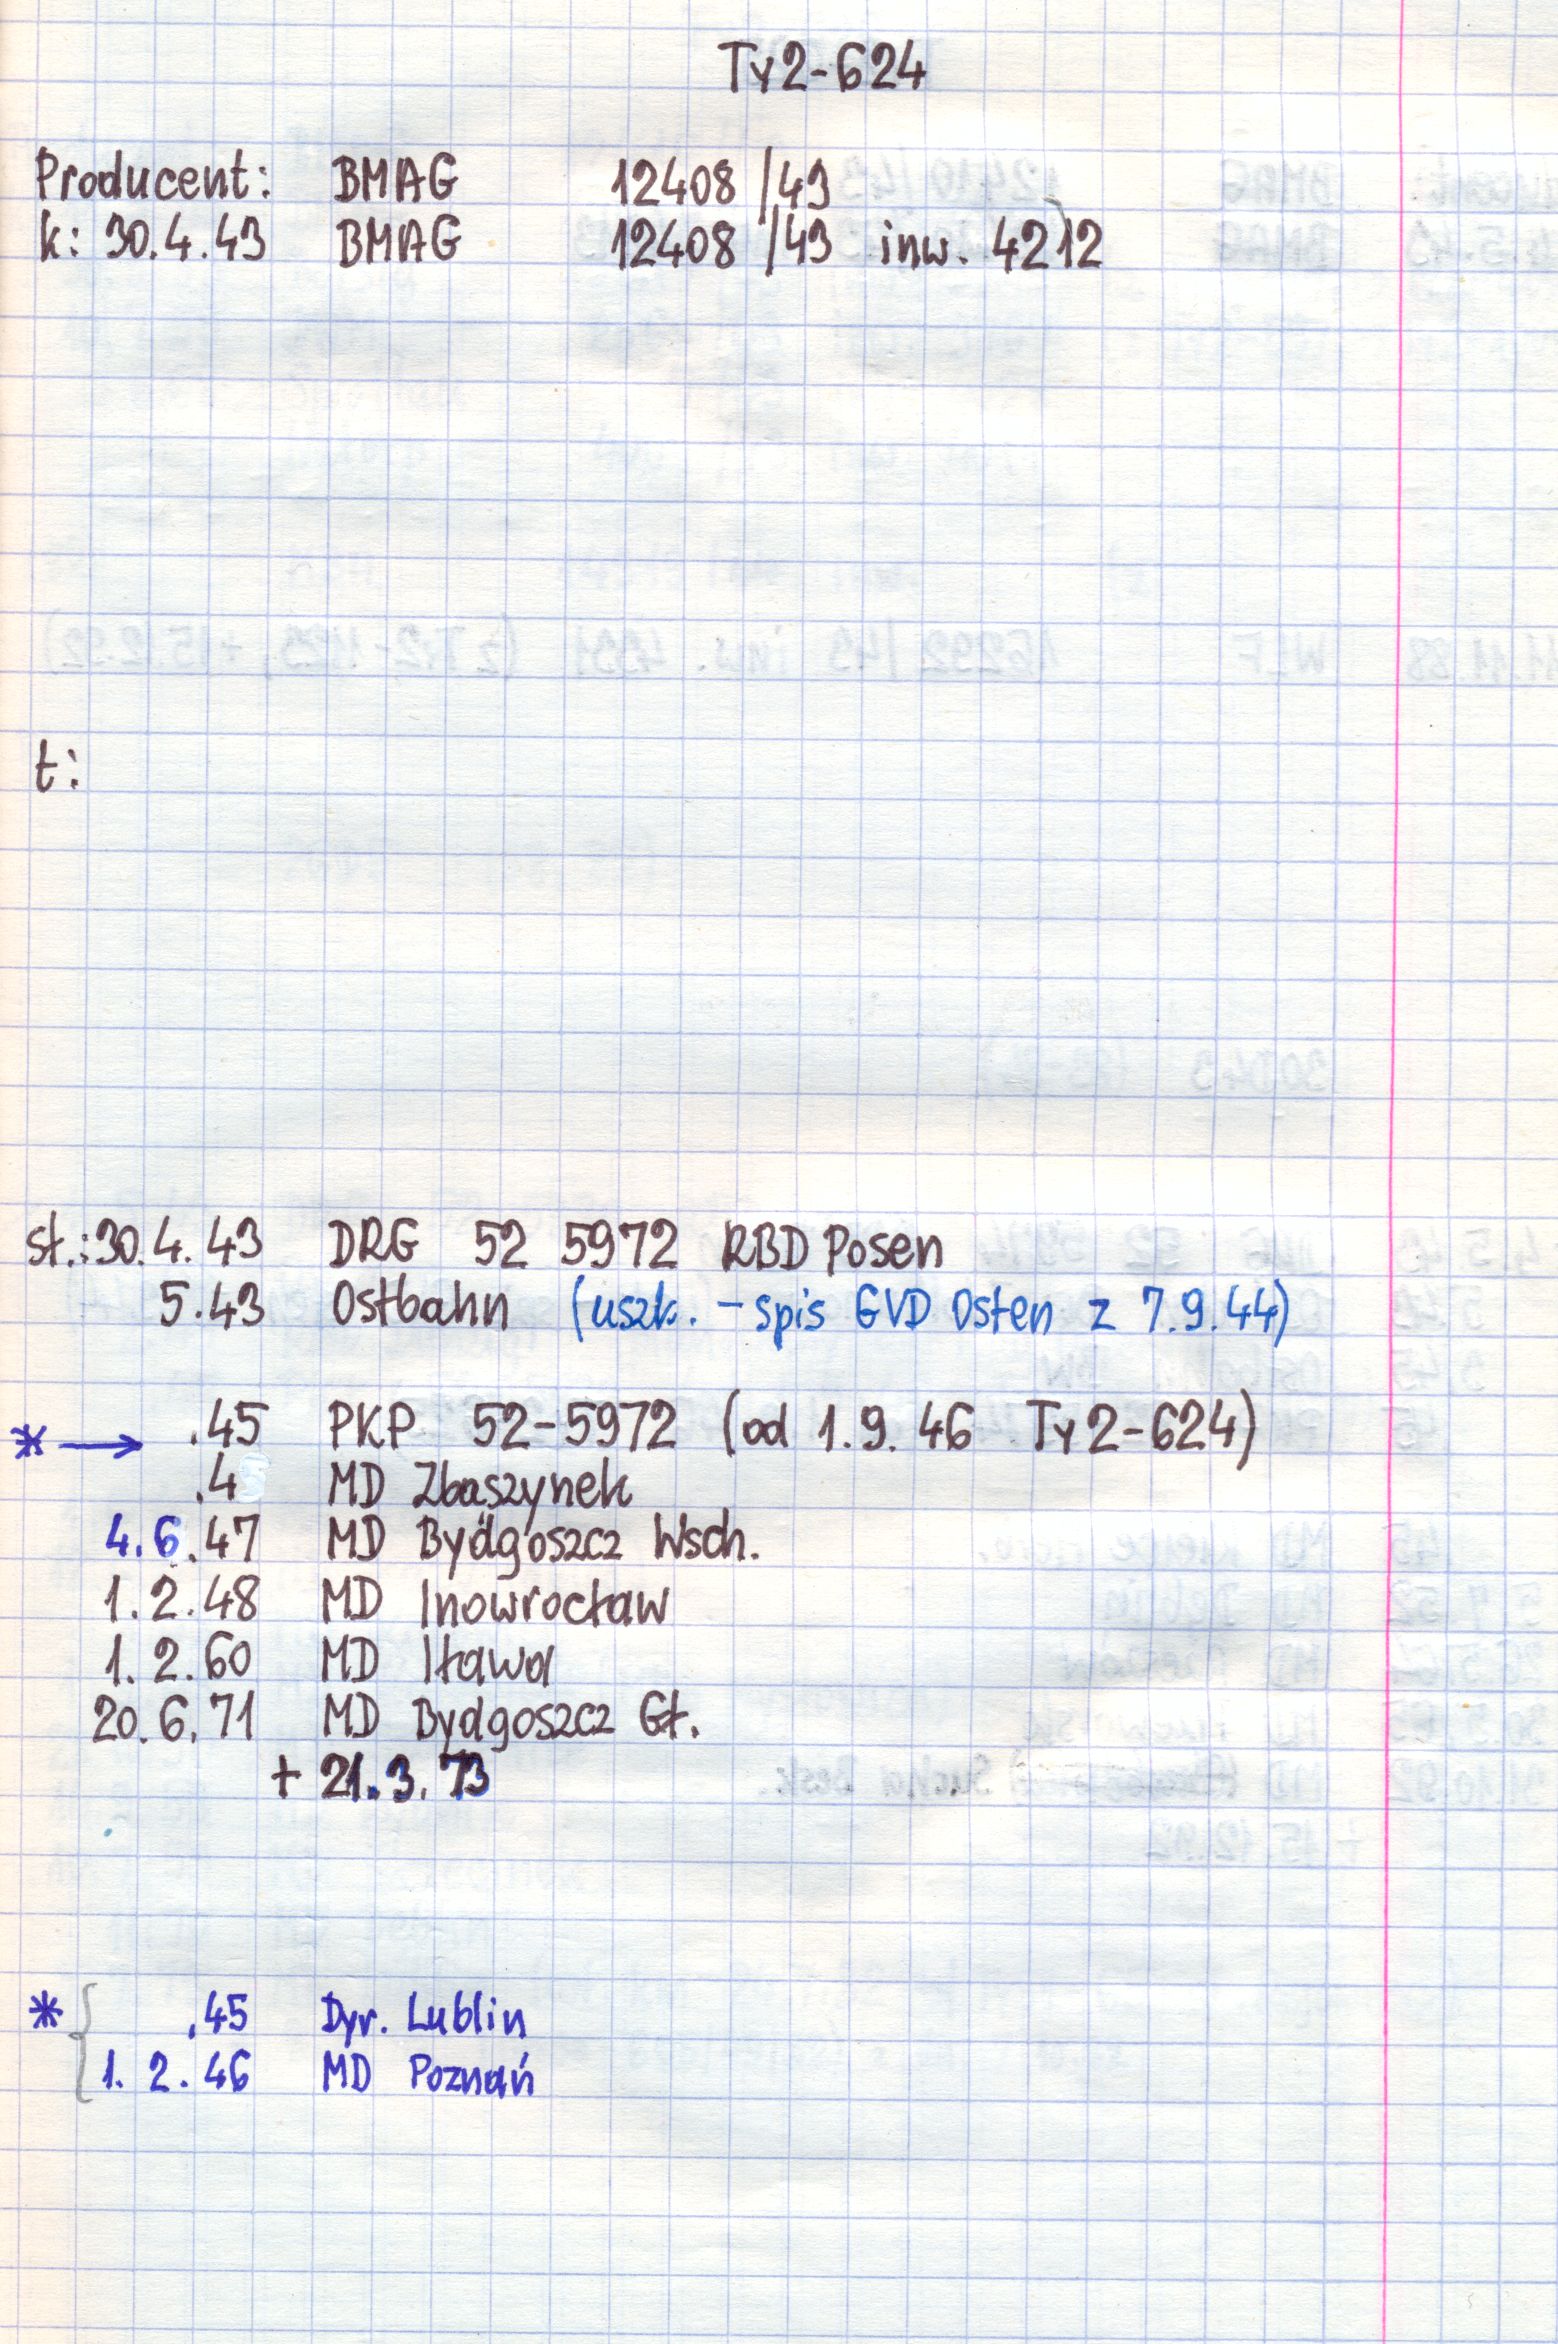 Ty2-624
Producent: BMAG 12408/43
k: 30.4.43 BMAG 12408/43 inw. 4212
t:
st.: 30.4.43 DRG 52 5972 RBD Posen
5.43 Ostbahn (uszk. - spis GVD Osten z 7.9.44)
* → .45 PKP 52-5972 (od 1.9.46 Ty2-624)
.4 MD Zbąszynek
4.6.47 MD Bydgoszcz Wsch.
1.2.48 MD Inowrocław
1.2.60 MD Iława
20.6.71 MD Bydgoszcz Gł.
+ 21.3.73
* { .45 Dyr. Lublin
1.2.46 MD Poznań